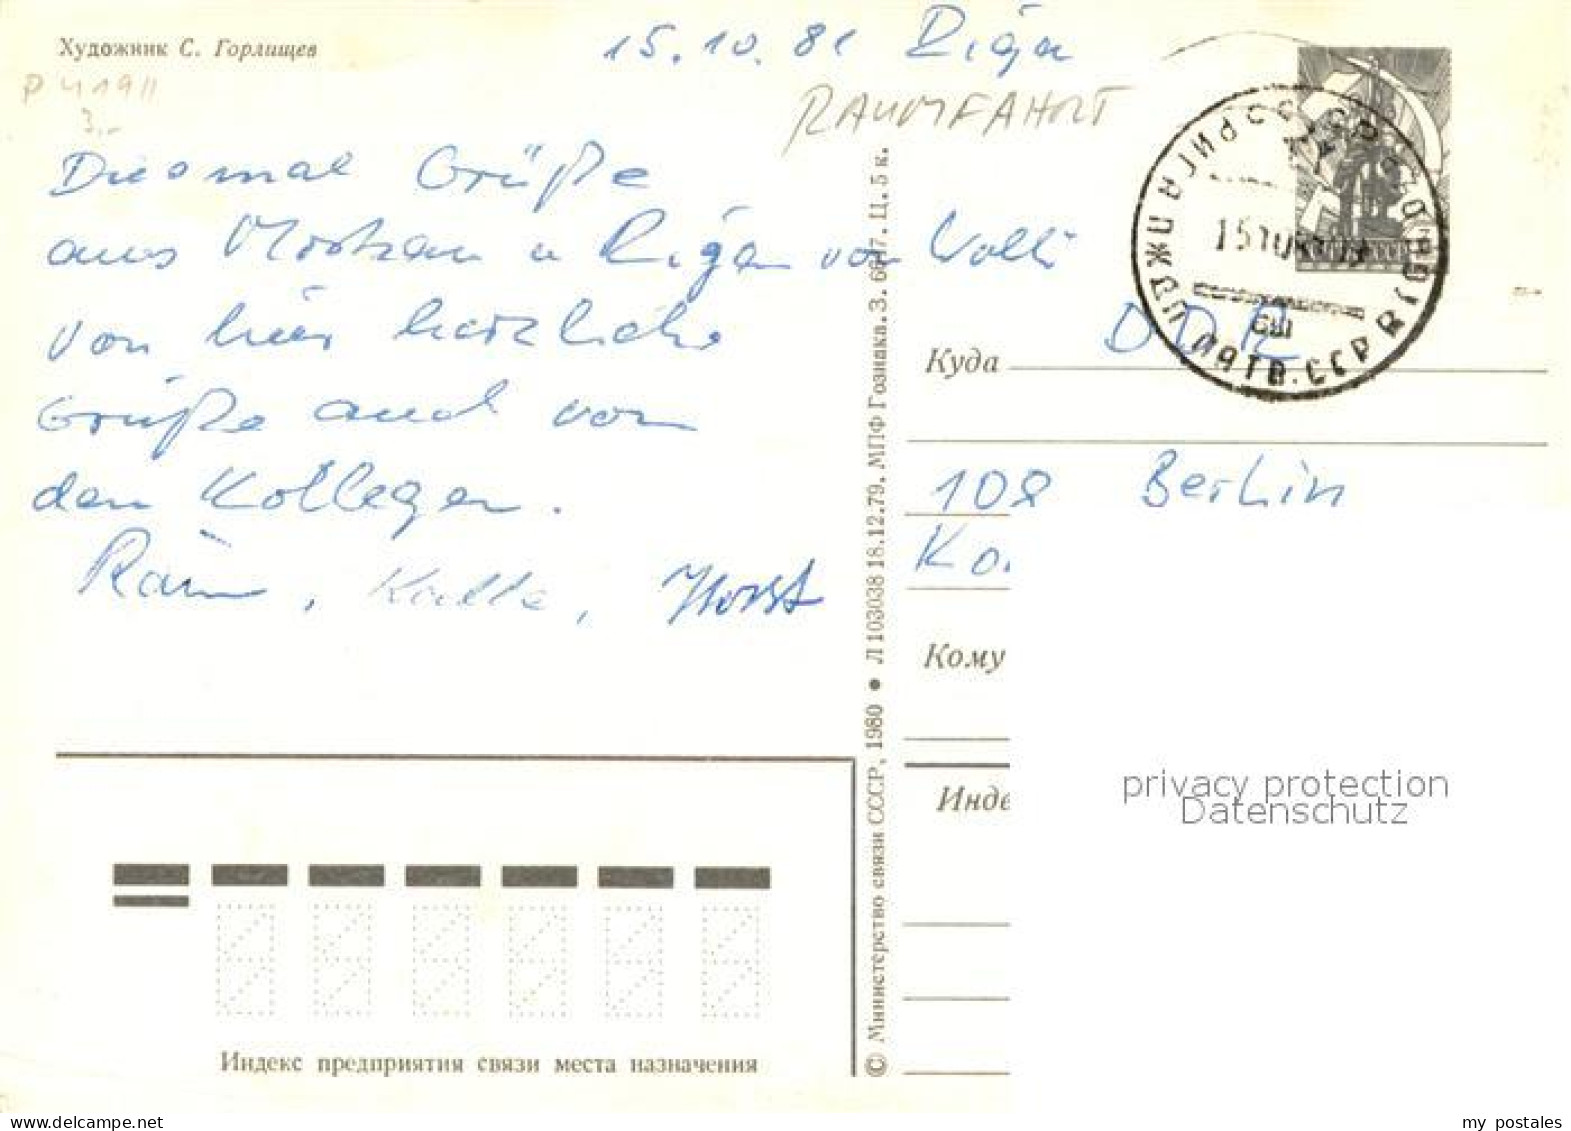 Художник С. Горлищев
15.10.81 Riga
P 41911
3,-
RAUMFAHRT
Diesmal Grüße
aus Moskau u Riga von Volki
von hier herzliche
Grüße auch von
den Kollegen.
Rain, Kalle, Horst
© Министерство связи СССР, 1980 • Л 103038 18.12.79. МПФ Гознака. З. 6647. Ц. 5 к.
15 10
ЛАТВ. ССР
Куда
DDR
108 Berlin
Ko
Кому
Инде
privacy protection
Datenschutz
Индекс предприятия связи места назначения
my postales